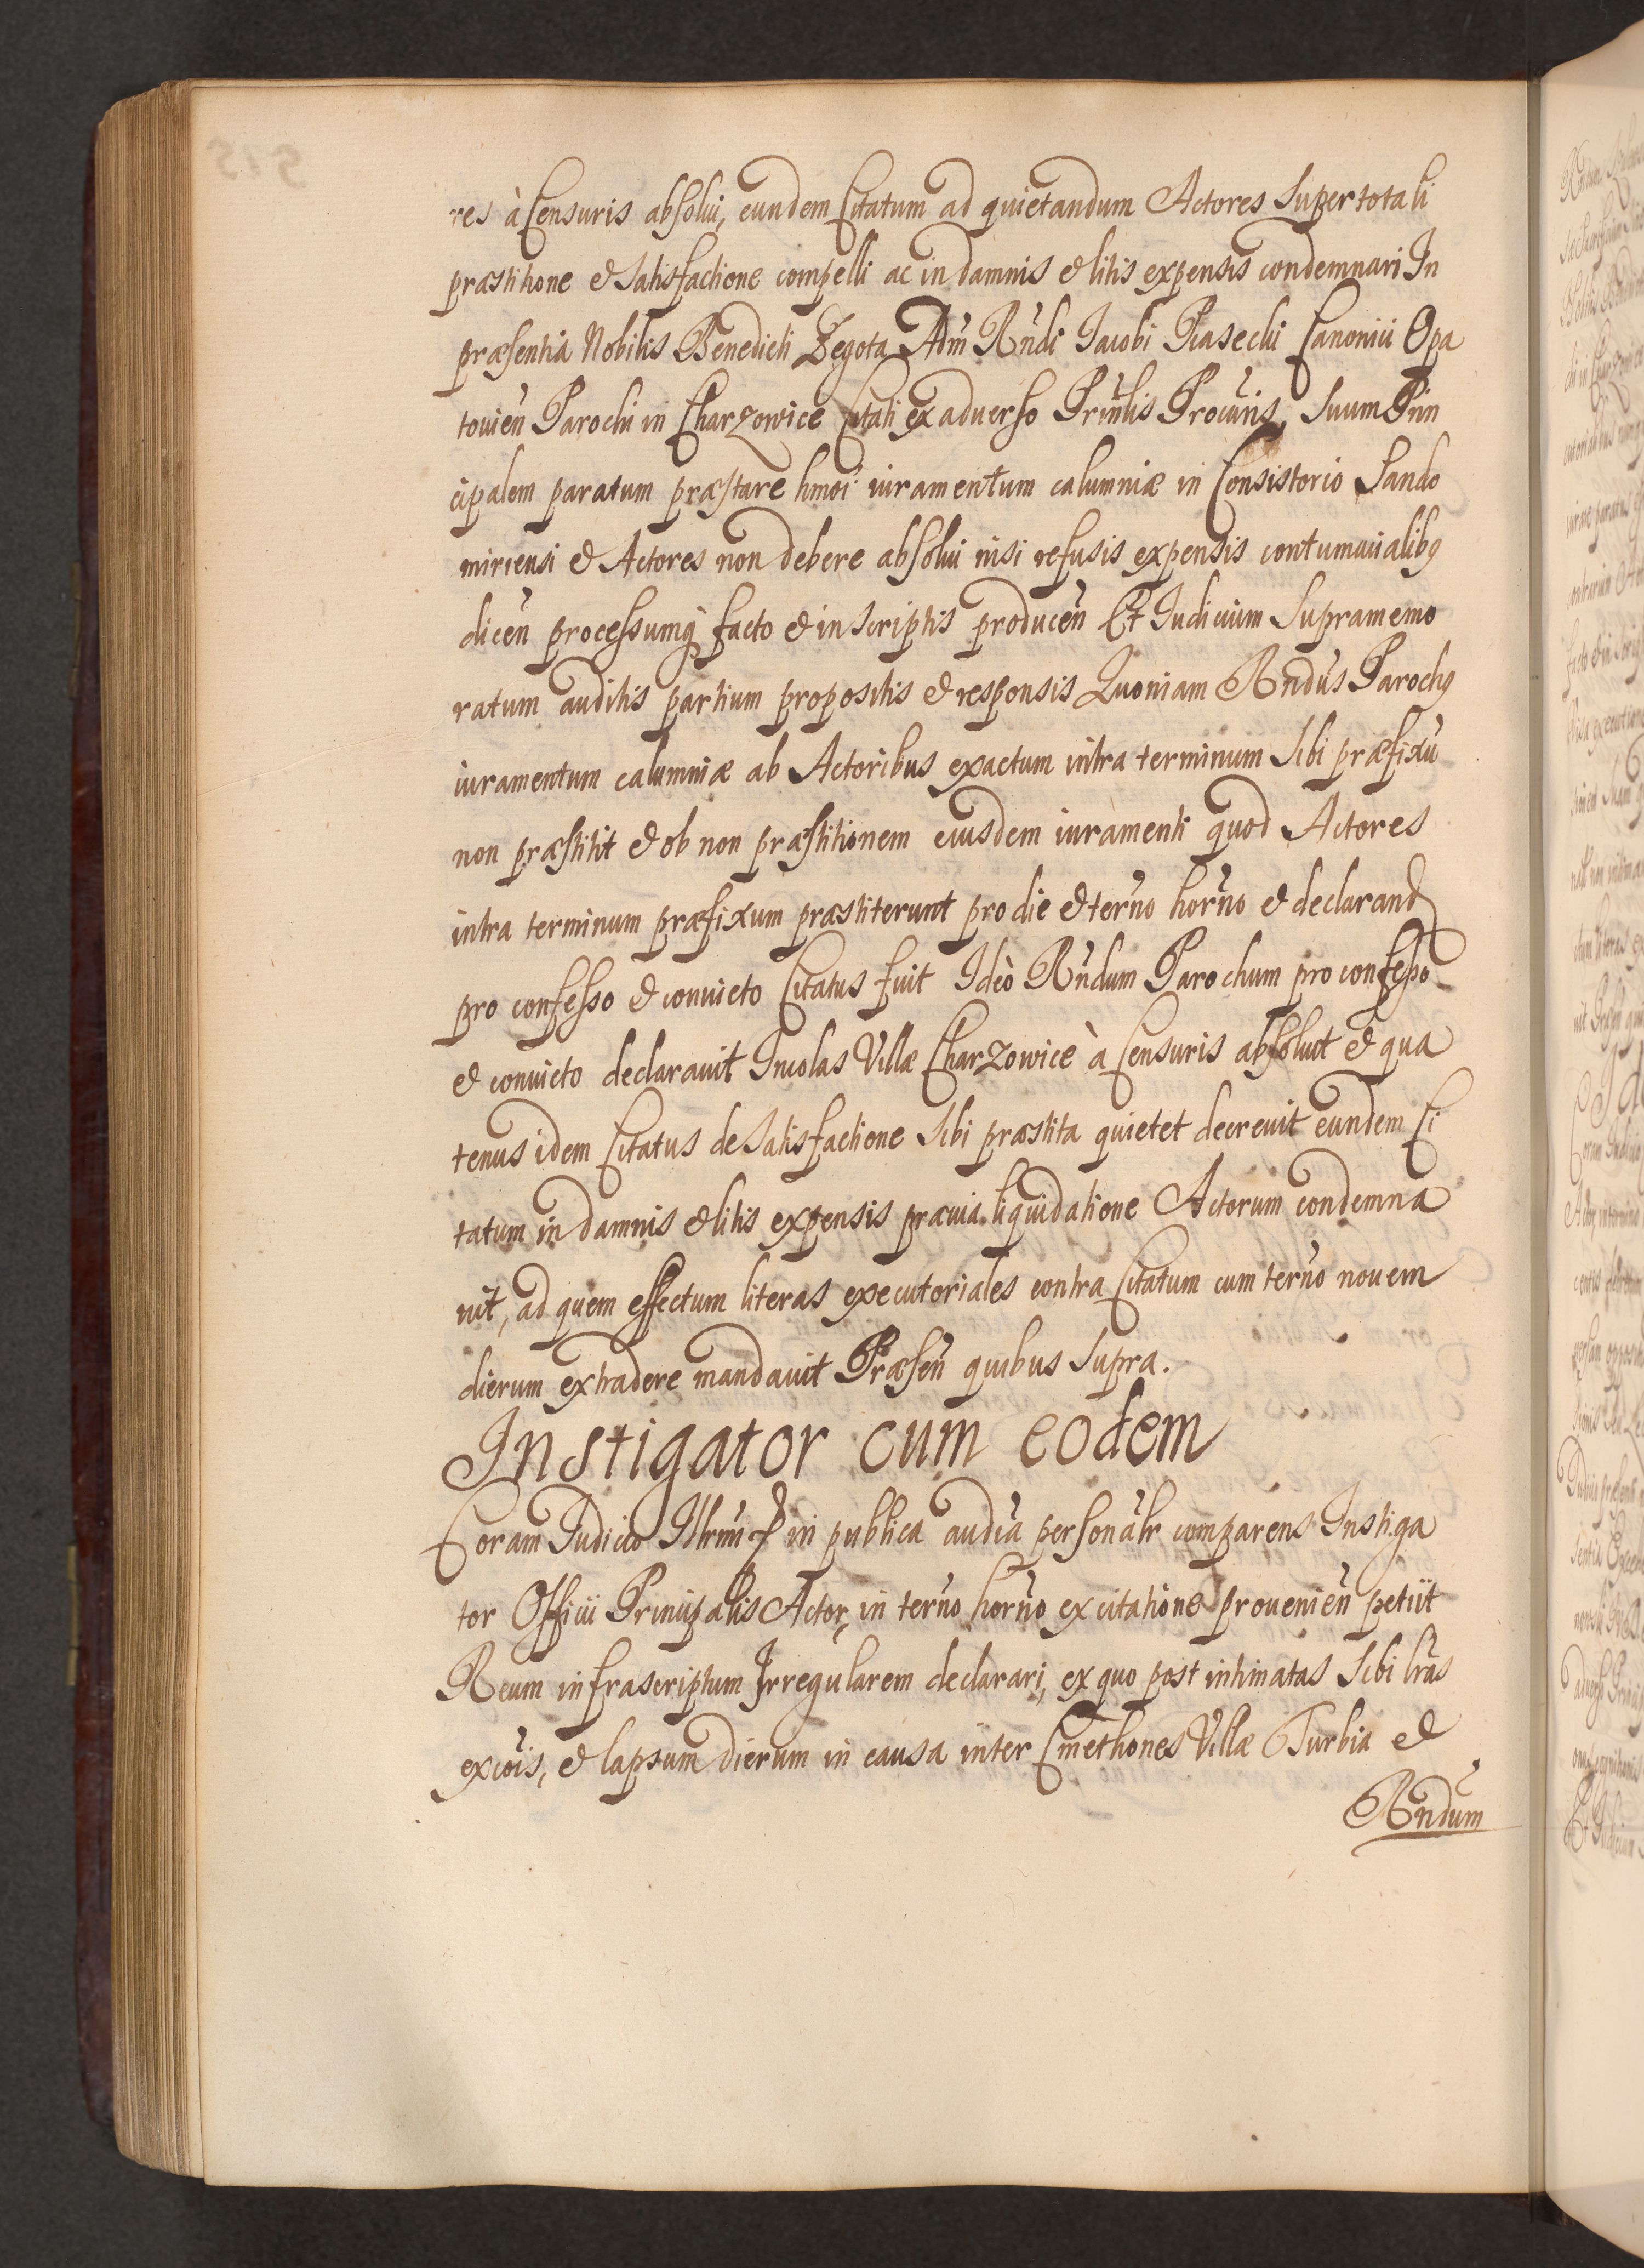 res à Censuris absolui, eundem Citatum ad quietandum Actores Super totali
præstitione et Satisfactione compelli ac in damnis et litis expensis condemnari In
præsentia Nobilis Benedicti Zegota Adm Rndi Iacobi Piasecki Canonici Opa
touien Parochi in Charzowice Citati ex aduerso Prinlis Procuris, Suum Prin
cipalem paratum præstare hmoi iuramentum calumniæ in Consistorio Sando
miriensi et Actores non debere absolui nisi refusis expensis contumacialibus
dicen processumq facto et in Scriptis producen Et Iudicium Supramemo
ratum auditis partium propositis et responsis Quoniam Rndus Parochus
iuramentum calumniæ ab Actoribus exactum intra terminum Sibi præfixū
non præstitit et ob non præstitionem eiusdem iuramenti quod Actores
intra terminum præfixum præstiterunt pro die et terno horno et declarand
pro confesso et conuicto Citatus fuit Ideò Rndum Parochum pro confesso
et conuicto declarauit Incolas Villæ Charzowice à Censuris absoluit et qua
tenus idem Citatus de Satisfactione Sibi præstita quietet decreuit eundem Ci
tatum in damnis et litis expensis præuia liquidatione Actorum condemna
uit, ad quem effectum literas executoriales contra Citatum cum terno nouem
dierum extradere mandauit Præsen quibus Supra.
Instigator cum eodem
Coram Iudicio Illrmi in publica audia personalr comparens Instiga
tor Officii Principalis Actor, in terno horno ex citatione prouenien petiit
Reum infrascriptum Irregularem declarari, ex quo post intimatas Sibi lras
excōis, et lapsum dierum in causa inter Cmethones Villæ Turbia et
Rndum